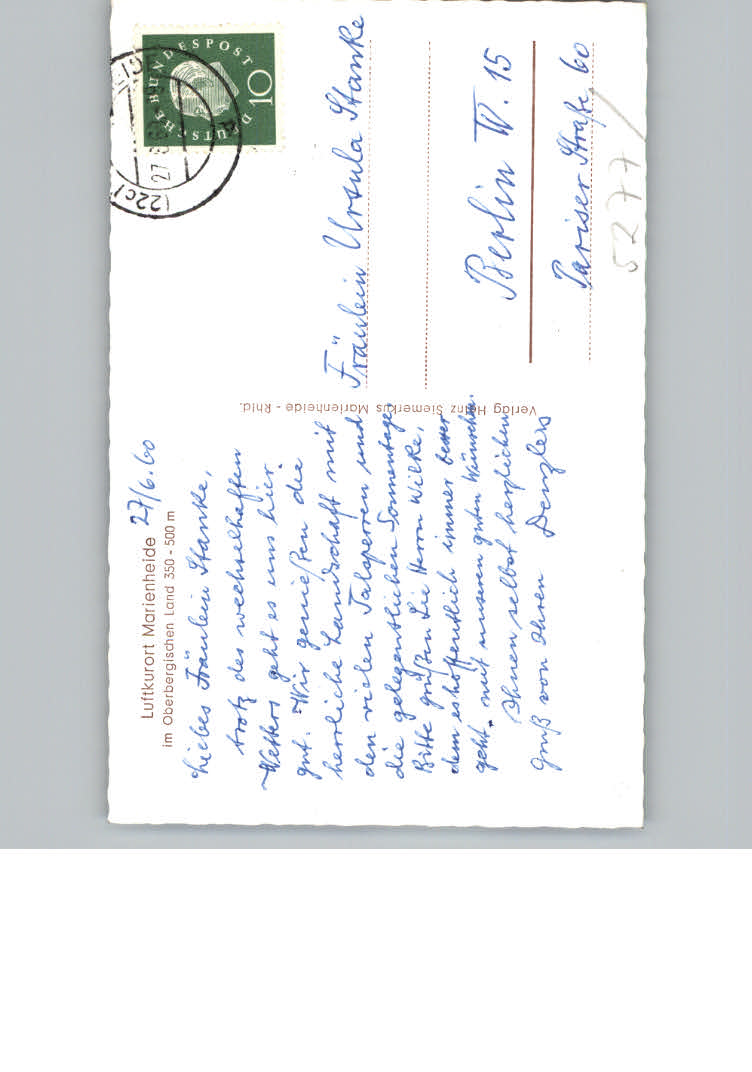 Luftkurort Marienheide 27/6.60
im Oberbergischen Land 350 - 500 m
Liebes Fräulein Stanke,
trotz des wechselhaften
Wetters geht es uns hier
gut. Wir genießen die
herrliche Landschaft mit
den vielen Talsperren und
die gelegentlichen Sonnentage.
Bitte grüßen Sie Herrn Wilke,
dem es hoffentlich immer besser
geht, mit unseren guten Wünschen.
Ihnen selbst herzlichen
Gruß von Ihren Denzlers
Verlag Heinz Siemerkus Marienheide - Rhld.
DEUTSCHE BUNDESPOST
10
(22c)
27
Fräulein Ursula Stanke
Berlin W. 15
Pariser Straße 60
5277/